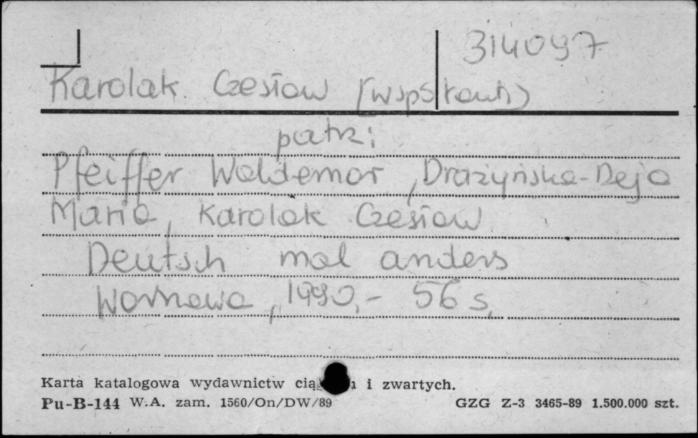 314097
Karolak Czesław (współaut.)
patrz:
Pfeiffer Woldemar, Drażyńska-Deja
Maria, Karolak Czesław
Deutsch mal anders
Warszawa, 1990,- 56 s.
Karta katalogowa wydawnictw i zwartych.
Pu-B-144 W.A. zam. 1560/On/DW/89 GZG Z-3 3465-89 1.500.000 szt.